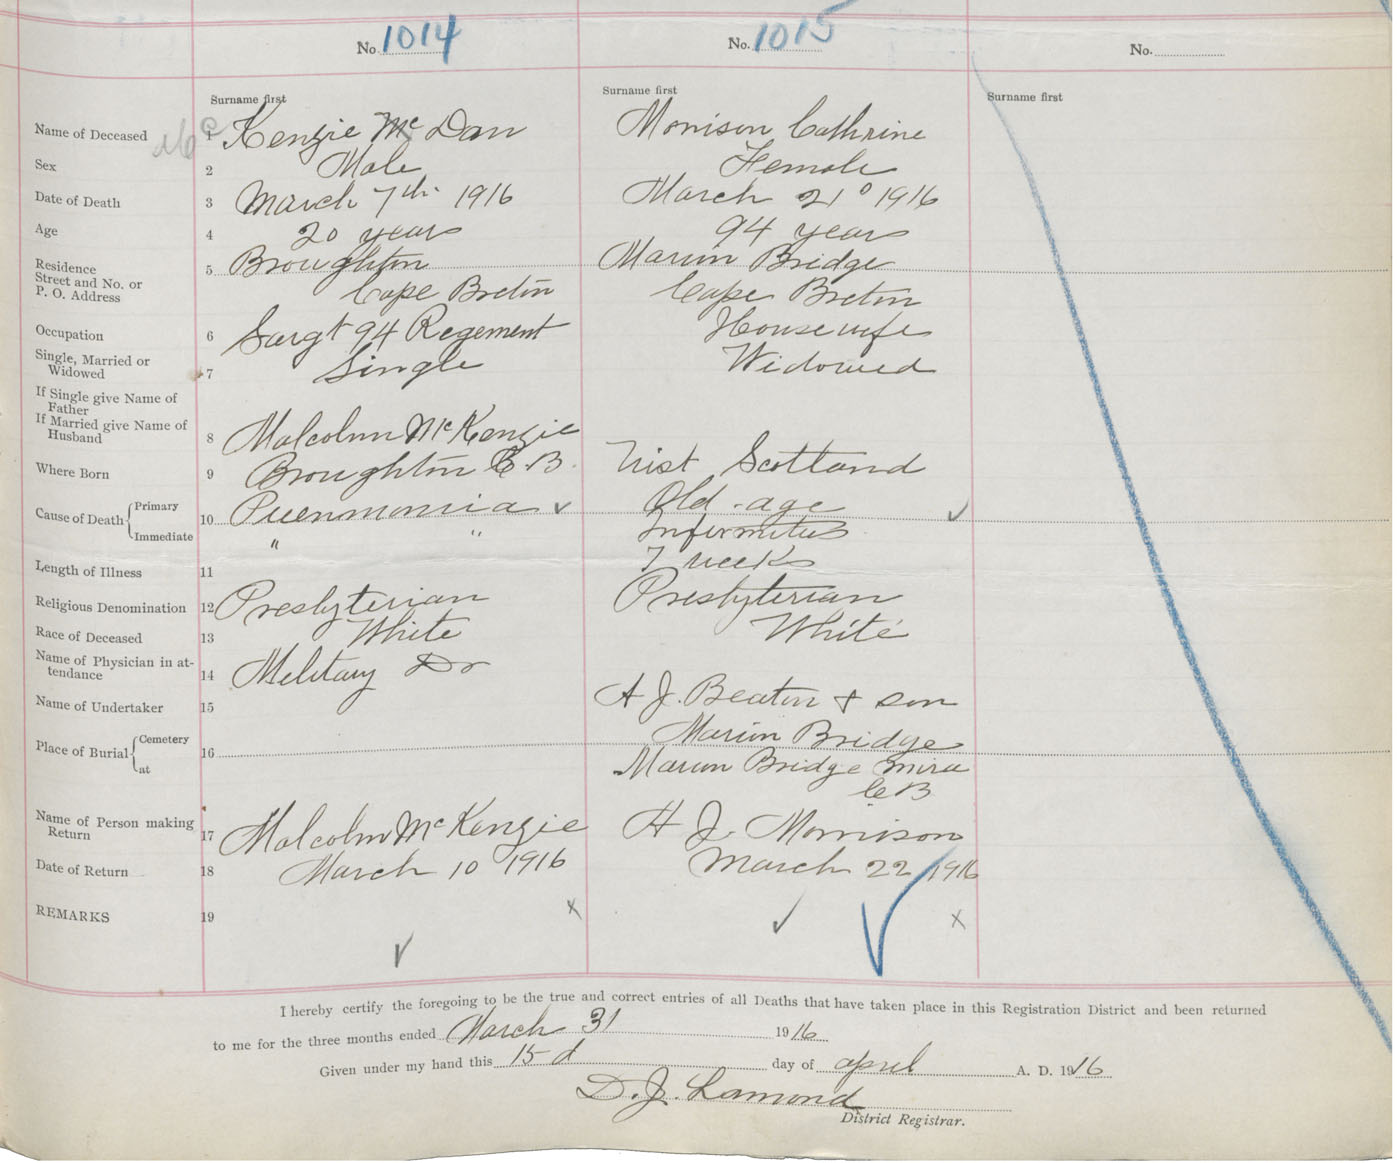 No. 1014
No. 1015
No.
Surname first
Surname first
Surname first
Name of Deceased 1 Mc Kenzie Mc Dan Morrison Cathrine
Sex 2 Male Female
Date of Death 3 March 7th 1916 March 21º 1916
Age 4 20 years 94 years
Residence
Street and No. or
P. O. Address
5 Broughton Marion Bridge
Cape Breton Cape Breton
Occupation 6 Sargt 94 Regement Housewife
Single, Married or
Widowed 7 Single Widowed
If Single give Name of
Father
If Married give Name of
Husband
8 Malcolm McKenzie
Where Born 9 Broughton C.B. Uist Scotland
Cause of Death { Primary 10 Puenmonia Old-age
Immediate " " Infirmities
Length of Illness 11 7 weeks
Religious Denomination 12 Presbyterian Presbyterian
Race of Deceased 13 White White
Name of Physician in at-
tendance 14 Melitary Dr
Name of Undertaker 15 A J. Beaton & son
Place of Burial { Cemetery 16 Marion Bridge
at Marion Bridge Mira
C B
Name of Person making
Return 17 Malcolm McKenzie H J. Morrison
Date of Return 18 March 10 1916 March 22 1916
REMARKS 19
I hereby certify the foregoing to be the true and correct entries of all Deaths that have taken place in this Registration District and been returned
to me for the three months ended March 31 1916
Given under my hand this 15 d day of april A. D. 1916
D. J. Lamond
District Registrar.